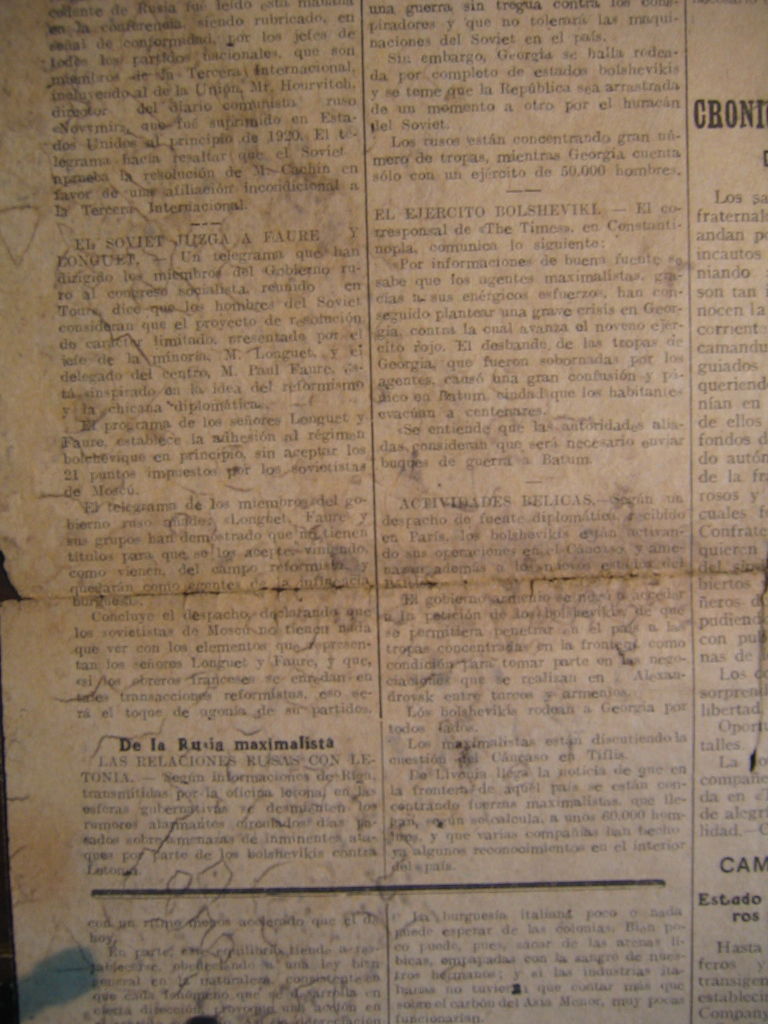 cedente de Rusia fué leído esta mañana
en la conferencia, siendo rubricado, en
señal de conformidad, por los jefes de
todos los partidos nacionales, que son
miembros de la Tercera Internacional,
incluyendo al de la Unión, Mr. Hourvitch,
director del diario comunista ruso
«Novymir», que fué suprimido en Esta-
dos Unidos al principio de 1920. El te-
legrama hacía resaltar que el Soviet
aprueba la resolución de M. Cachin en
favor de una afiliación incondicional a
la Tercera Internacional.
EL SOVIET JUZGA A FAURE Y
LONGUET. — Un telegrama que han
dirigido los miembros del Gobierno ru-
so al congreso socialista, reunido en
Tours, dice que los hombres del Soviet
consideran que el proyecto de resolución
de carácter limitado, presentado por el
jefe de la minoría, M. Longuet, y el
delegado del centro, M. Paul Faure, es-
tá inspirado en la idea del reformismo
y la chicana diplomática.
El programa de los señores Longuet y
Faure, establece la adhesión al régimen
bolchevique en principio, sin aceptar los
21 puntos impuestos por los sovietistas
de Moscú.
El telegrama de los miembros del go-
bierno ruso añade: «Longuet, Faure y
sus grupos han demostrado que no tienen
títulos para que se los acepte viniendo,
como vienen, del campo reformista y
quedarán como agentes de la influencia
burguesa».
Concluye el despacho, declarando que
los sovietistas de Moscú no tienen nada
que ver con los elementos que represen-
tan los señores Longuet y Faure, y que,
«si los obreros franceses se enredan en
tales transacciones reformistas, eso se-
rá el toque de agonía de su partido».
De la Rusia maximalista
LAS RELACIONES RUSAS CON LE-
TONIA. — Según informaciones de Riga,
transmitidas por la oficina letona, en las
esferas gubernativas se desmienten los
rumores alarmantes circulados días pa-
sados sobre amenazas de inminentes ata-
ques por parte de los bolshevikis contra
Letonia.
con un ritmo menos acelerado que el de
hoy.
En parte, este equilibrio tiende a res-
tablecerse, obedeciendo a una ley bien
general en la naturaleza, consistente en
que cada fenómeno que se desarrolla en
cierta dirección, provoque una acción en
una guerra sin tregua contra los cons-
piradores y que no tolerará las maqui-
naciones del Soviet en el país.
Sin embargo, Georgia se halla rodea-
da por completo de estados bolshevikis
y se teme que la República sea arrastrada
de un momento a otro por el huracán
del Soviet.
Los rusos están concentrando gran nú-
mero de tropas, mientras Georgia cuenta
sólo con un ejército de 50.000 hombres.
EL EJERCITO BOLSHEVIKI. — El co-
rresponsal de «The Times», en Constanti-
nopla, comunica lo siguiente:
«Por informaciones de buena fuente se
sabe que los agentes maximalistas, gra-
cias a sus enérgicos esfuerzos, han con-
seguido plantear una grave crisis en Geor-
gia, contra la cual avanza el noveno ejér-
cito rojo. El desbande, de las tropas de
Georgia, que fueron sobornadas por los
agentes, causó una gran confusión y pá-
nico en Batum, ciudad que los habitantes
evacúan a centenares.
«Se entiende que las autoridades alia-
das, consideran que será necesario enviar
buques de guerra a Batum.
ACTIVIDADES BELICAS.—Según un
despacho de fuente diplomática, recibido
en París, los bolshevikis están activan-
do sus operaciones en el Cáucaso, y ame-
nazan además a los nuevos estados del
El gobierno armenio se negó a acceder
a la petición de los bolshevikis de que
se permitiera penetrar en el país a las
tropas concentradas en la frontera, como
condición para tomar parte en las nego-
ciaciones que se realizan en Alexan-
drovsk entre turcos y armenios.
Los bolshevikis rodean a Georgia por
todos lados.
Los maximalistas están discutiendo la
cuestión del Cáucaso en Tiflis.
De Livonia llega la noticia de que en
la frontera de aquel país se están con-
centrando fuerzas maximalistas, que lle-
gan, según se calcula, a unos 60.000 hom-
bres, y que varias compañías han hecho
ya algunos reconocimientos en el interior
del país.
La burguesía italiana poco o nada
puede esperar de las colonias. Bien po-
co puede, pues, sacar de las arenas lí-
bicas, empapadas con la sangre de nues-
tros hermanos; y si las industrias ita-
lianas no tuvieran que contar más que
sobre el carbón del Asia Menor, muy pocas
funcionarían.
CRONI
Los sa
fraternal
andan po
incautos
niando
son tan
nocen la
corrient
camandu
guiados
queriend
nían en
de ellos
fondos d
do autón
de la fra
rosos y
cuales f
Confrate
quieren
biertos
ñeros d
pudiend
con pu
nas de
Los c
sorprend
libertad
Oport
talles.
La
compañe
da en
de alegrí
lidad.—C
CAM
Estado
ros
Hasta
feros y
transigen
establecie
Company